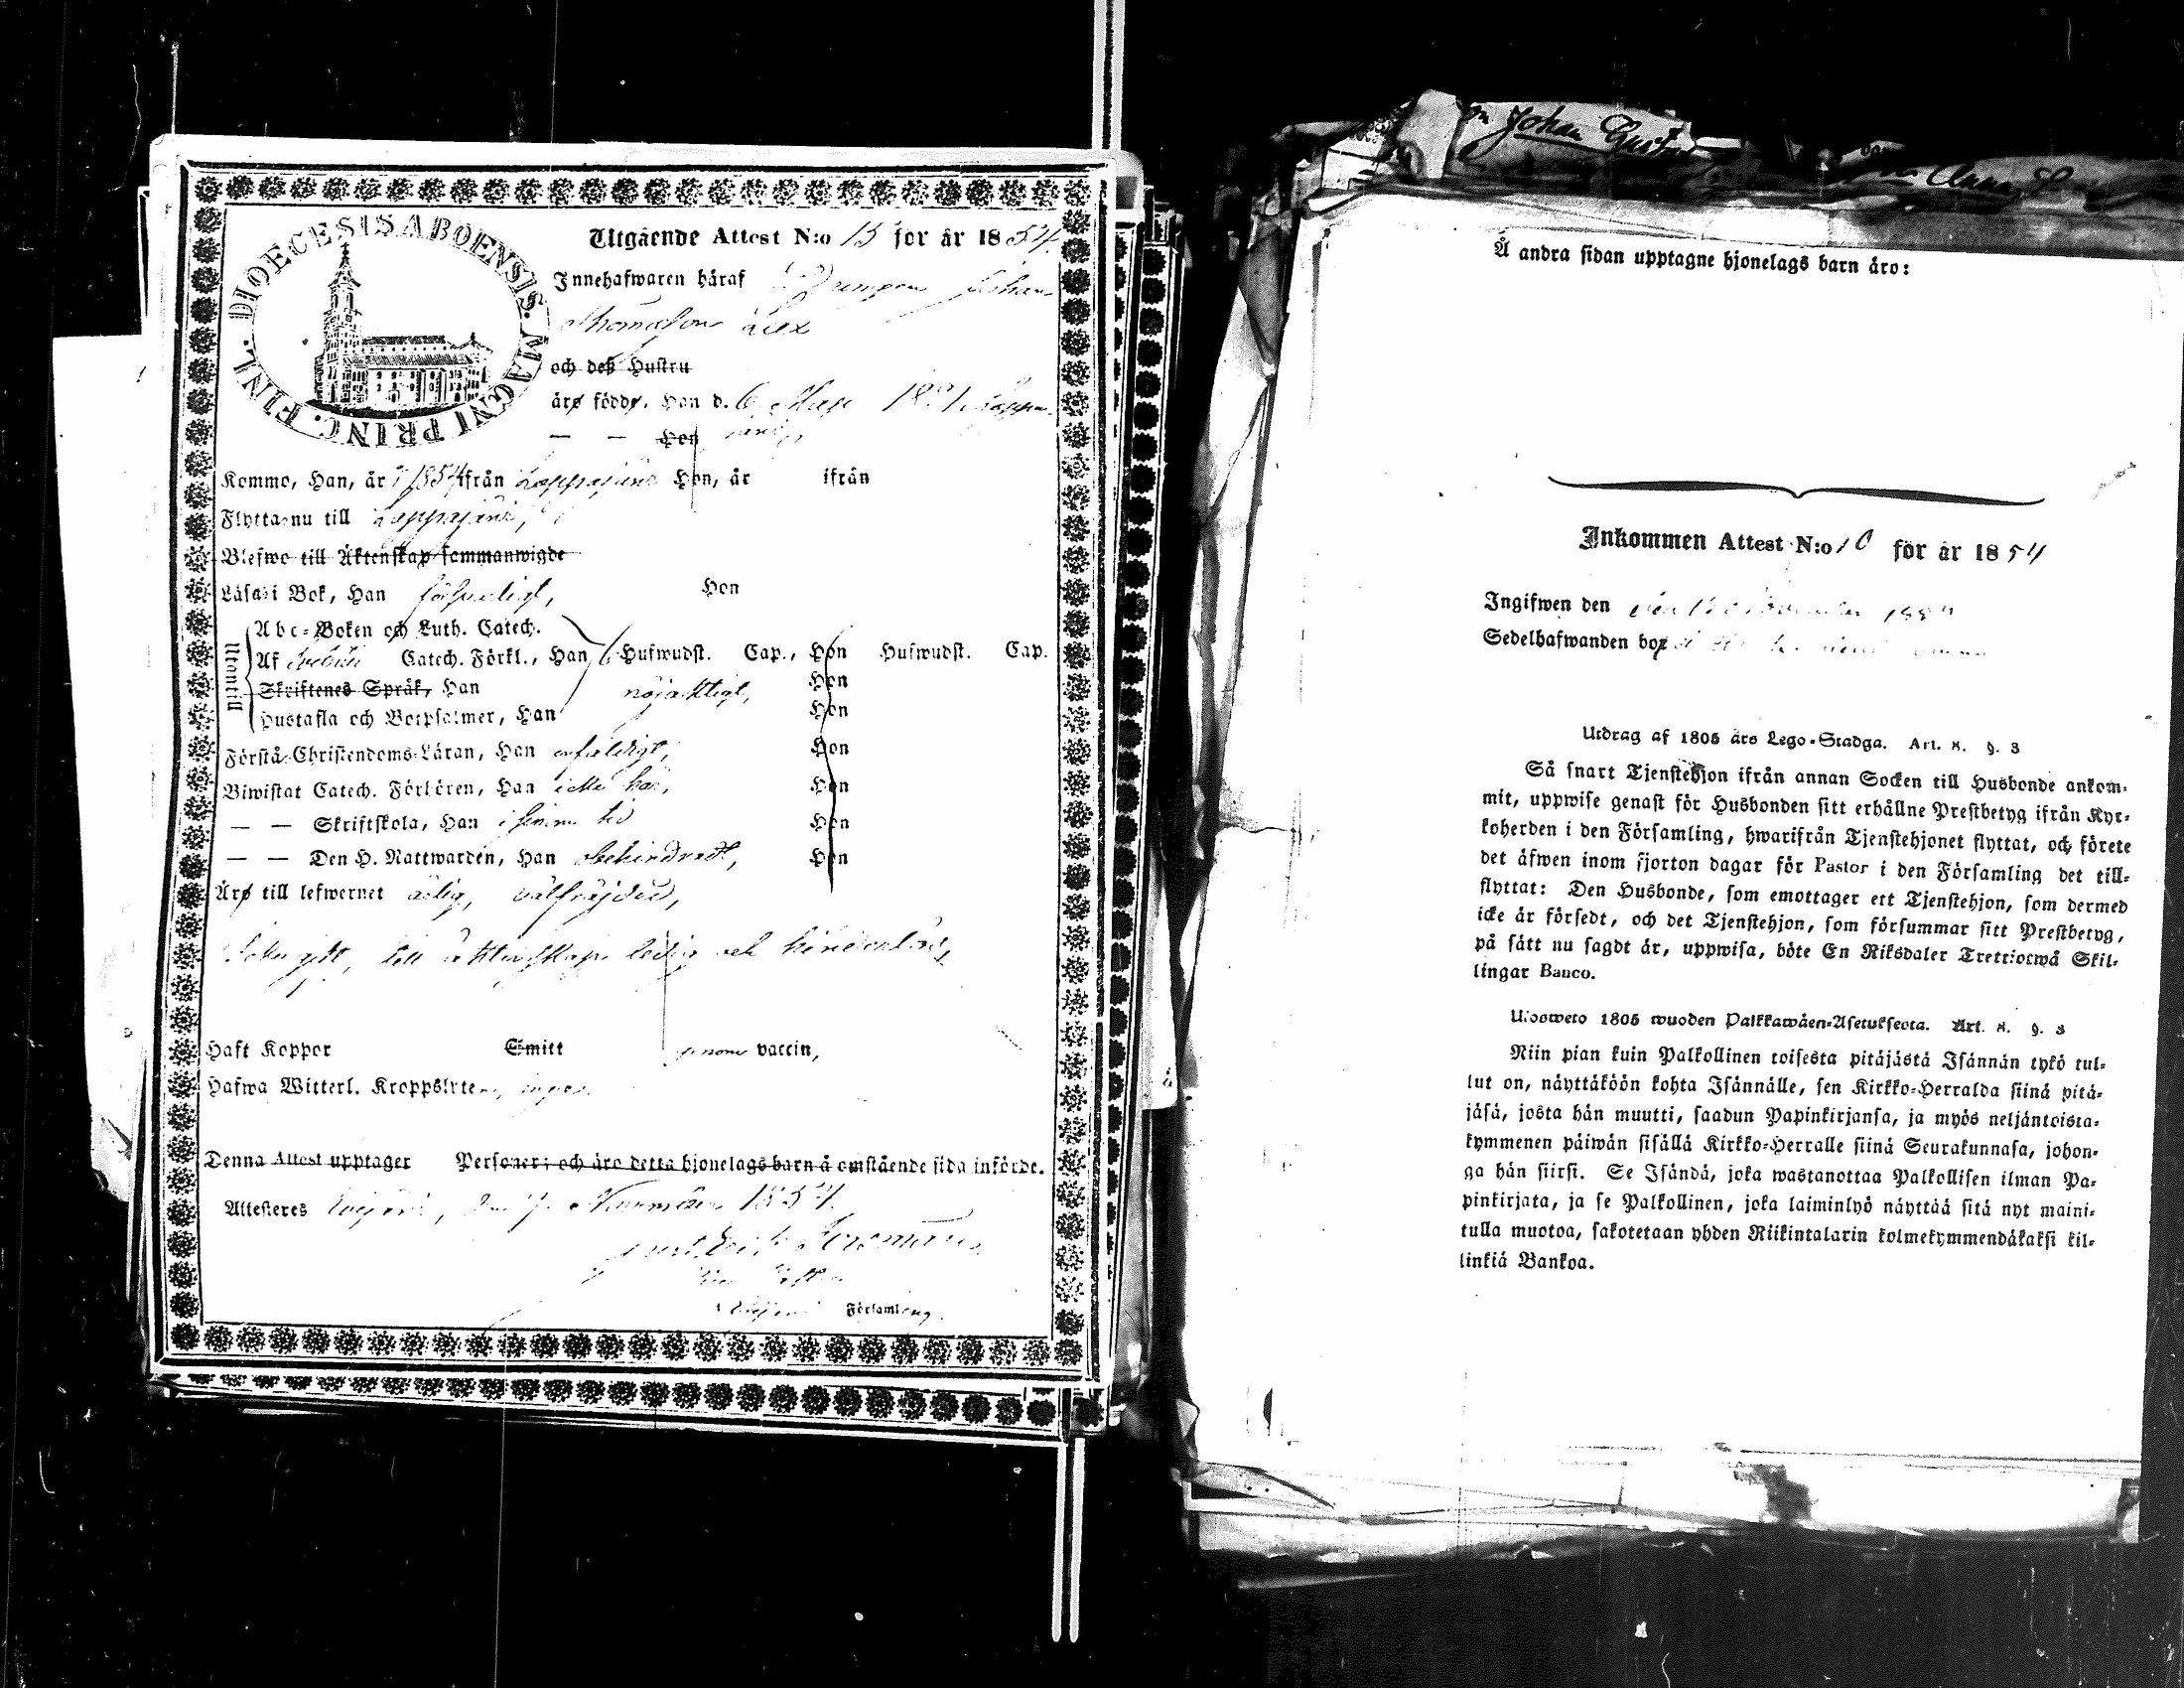 DIOECESIS ABOENSIS. MAGNI PRINC. FINL.
Utgående Attest N:o 15 för år 1854.
Innehafwaren häraf Drengen Johan
Thomasson
och deß Hustru
äro födde. Han d. 6 Maji
— — Hon
Komme, Han, år 1854 ifrån Lappajärvi Hon, år ifrån
Flytta nu till Lappajärvi,
Blefwo till Äktenskap sammanwigde
Läsa i Bok, Han försvarligt, Hon
Utantill
Abc-Boken och Luth. Catech.
Af Svebilii Catech. Förkl., Han 6 Hufwudst. Cap., Hon Hufwudst. Cap.
Skriftenes Språk, Han nöjaktligt, Hon
Hustafla och Botpsalmer, Han Hon
Förstå Christendoms-Läran, Han enfaldigt, Hon
Biwistat Catech. Förhören, Han icke här, Hon
— — Skriftskola, Han i sinom tid Hon
— — Den H. Nattwarden, Han obehindradt, Hon
Äro till lefwernet ärlig, välfräjdad,
till äktenskap ledig och hinderlös,
Haft Koppor Smitt genom vaccin,
Hafwa Witterl. Kroppslyten, inga
Denna Attest upptager Personer; och äro detta hjonelags barn å omstående sida införde.
Attesteres Evijärvi, den 7 November 1854.
Församling.
Johan Gustaf
Anna
Å andra sidan upptagne hjonelags barn äro:
Inkommen Attest N:o 10 för år 1854
Ingifwen den November 1854
Sedelhafwanden bor
Utdrag af 1805 års Lego-Stadga. Art. 8. §. 3
Så snart Tjenstehjon ifrån annan Socken till Husbonde ankom-
mit, uppwise genast för Husbonden sitt erhållne Prestbetyg ifrån Kyr-
koherden i den Församling, hwarifrån Tjenstehjonet flyttat, och förete
det äfwen inom fjorton dagar för Pastor i den Församling det till-
flyttat: Den Husbonde, som emottager ett Tjenstehjon, som dermed
icke är försedt, och det Tjenstehjon, som försummar sitt Prestbetyg,
på sätt nu sagdt är, uppwisa, böte En Riksdaler Trettiotwå Skil-
lingar Banco.
Ulosweto 1805 wuoden Palkkawäen-Asetuksesta. Art. 8. §. 3
Niin pian kuin Palkollinen toisesta pitäjästä Isännän tykö tul-
lut on, näyttäköön kohta Isännälle, sen Kirkko-Herralda siinä pitä-
jäsä, josta hän muutti, saadun Papinkirjansa, ja myös neljäntoista-
kymmenen päiwän sisällä Kirkko-Herralle siinä Seurakunnasa, johon-
ga hän siirsi. Se Isändä, joka wastanottaa Palkollisen ilman Pa-
pinkirjata, ja se Palkollinen, joka laiminlyö näyttää sitä nyt maini-
tulla muotoa, sakotetaan yhden Riikintalarin kolmekymmendäkaksi kil-
linkiä Bankoa.